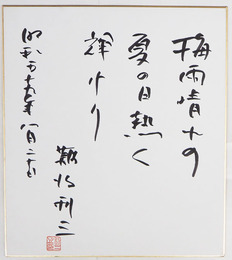 梅雨晴れの
夏の日熱く
輝けり
難波利三
昭和五十九年八月二十日